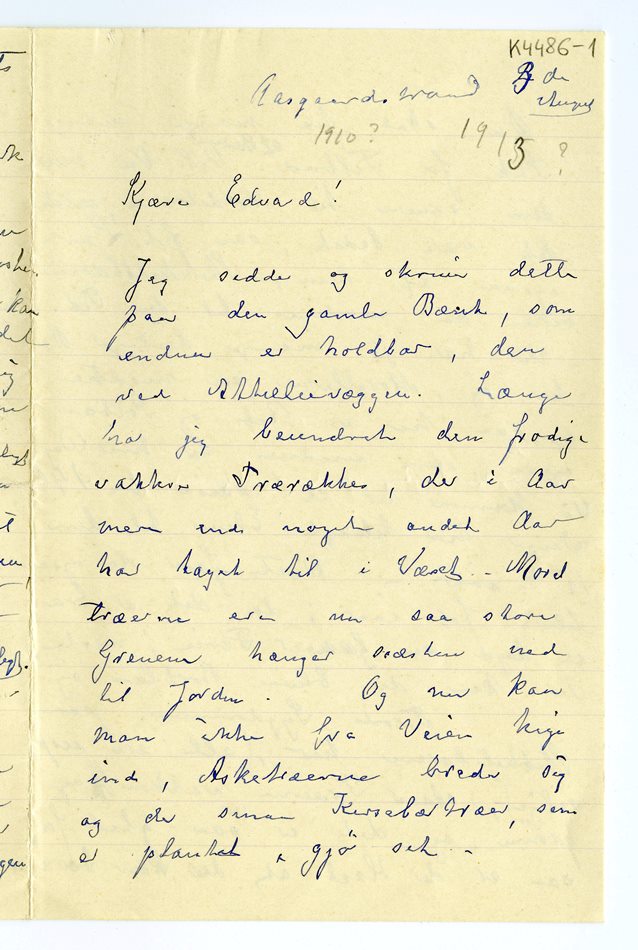 K4486-1
Aasgaardstrand de
August
1910? 1913 ?
Kjære Edvard!
Jeg sedder og skriver dette
paa den gamle Bænk, som
endnu er holdbar, den
ved Athelievæggen. Længe
har jeg beundret den frodige
vakkre Trærække, der i Aar
mere end noget andet Aar
har taget til i Væxt. – Morel
træerne ere nu saa store
Grenene hænger næsten ned
til Jorden. Og nu kan
man ikke fra Veien kige
ind, Asketræerne breder sig
og de smaa Kirsebærtræer, som
er plantet, gjør sit –